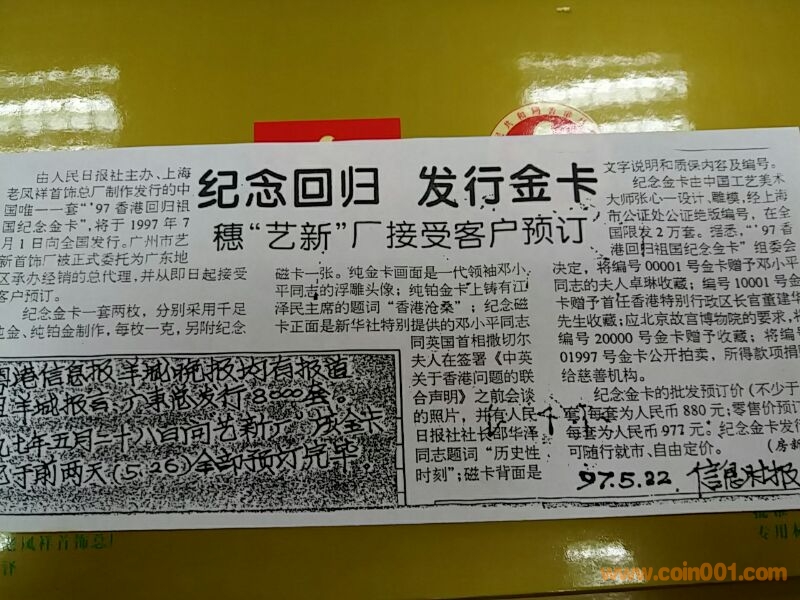 纪念回归 发行金卡
穗“艺新”厂接受客户预订
由人民日报社主办、上海
老凤祥首饰总厂制作发行的中
国唯一一套“'97香港回归祖
国纪念金卡”,将于1997年7
月1日向全国发行。广州市艺
新首饰厂被正式委托为广东地
区承办经销的总代理,并从即日起接受
客户预订。
纪念金卡一套两枚,分别采用千足
纯金、纯铂金制作,每枚一克,另附纪念
磁卡一张。纯金卡画面是一代领袖邓小
平同志的浮雕头像;纯铂金卡上铸有江
泽民主席的题词“香港沧桑”;纪念磁
卡正面是新华社特别提供的邓小平同志
同英国首相撒切尔
夫人在签署《中英
关于香港问题的联
合声明》之前会谈
的照片,并有人民
日报社社长邵华泽
同志题词“历史性
时刻”;磁卡背面是
文字说明和质保内容及编号。
纪念金卡由中国工艺美术
大师张心一设计、雕模,经上海
市公证处公证绝版编号,在全
国限发2万套。据悉,“'97香
港回归祖国纪念金卡”组委会
决定,将编号00001号金卡赠予邓小平
同志的夫人卓琳收藏;编号10001号金
卡赠予首任香港特别行政区长官董建华
先生收藏;应北京故宫博物院的要求,将
编号20000号金卡赠予收藏;将编号
01997号金卡公开拍卖,所得款项捐
给慈善机构。
纪念金卡的批发预订价(不少于
套)每套为人民币880元;零售价预订
每套为人民币977元。纪念金卡发行
可随行就市、自由定价。
粤港信息报羊城晚报均有报道
且羊城报言,广东总发行8000套。
九七年五月二十八日问艺新厂,成全卡
已于前两天(5.26)全部预订完毕。
97.5.22.信息时报
共和国香港
老凤祥首饰总厂
译
专用
www.coin001.com